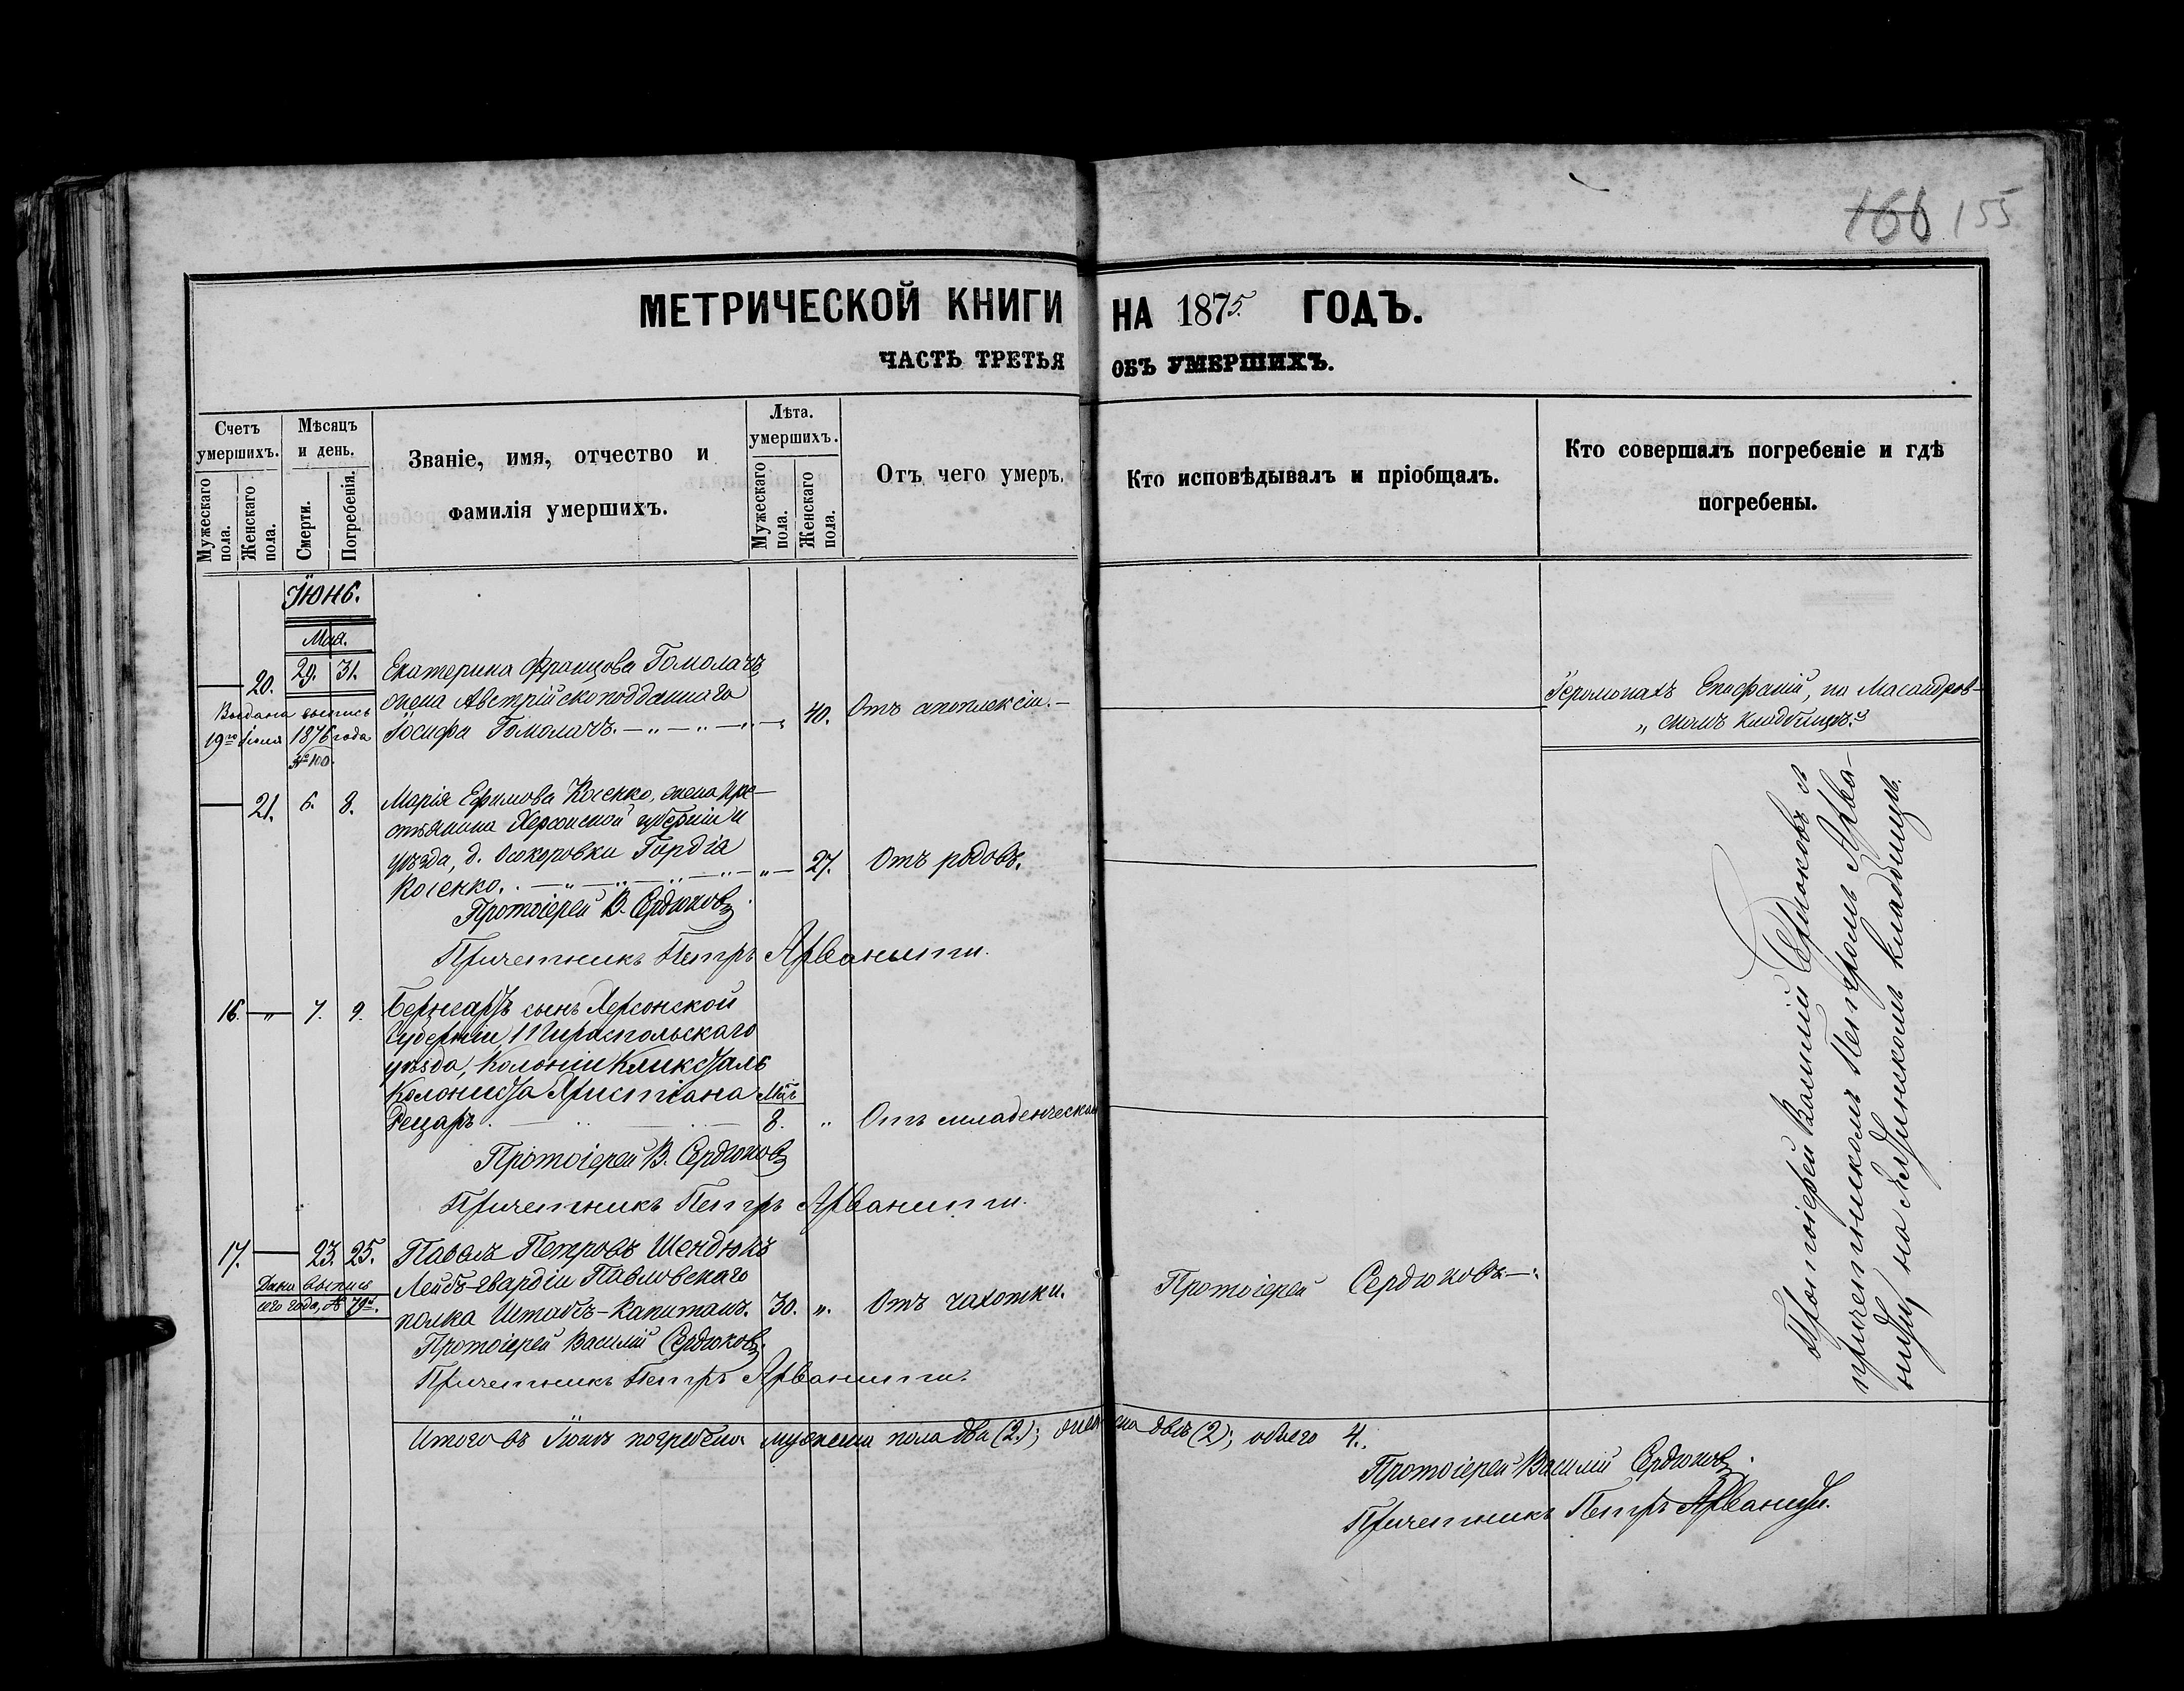 166 155
МЕТРИЧЕСКОЙ КНИГИ НА 1875 ГОДЪ.
ЧАСТЬ ТРЕТЬЯ ОБЪ УМЕРШИХЪ.
Счетъ умершихъ.
Мужескаго пола.
Женскаго пола.
Мѣсяцъ и день.
Смерти.
Погребенія.
Званіе, имя, отчество и
фамилія умершихъ.
Лѣта.
умершихъ.
Мужескаго пола.
Женскаго пола.
Отъ чего умеръ.
Кто исповѣдывалъ и пріобщалъ.
Кто совершалъ погребеніе и гдѣ
погребены.
Іюнь.
Мая.
20. 29. 31. Екатерина Францова Гомолачъ
жена Австрійскоподданнаго
Іосифа Гомолачъ. 40. Отъ апоплексіи.
Выдана выпись
19го Іюля 1876 года
№ 100.
Іеромонахъ Епифаній, на Масандров-
скомъ кладбищѣ.
21. 6. 8. Марія Ефимова Косенко, жена кре-
стьянина Херсонской губерніи и
уѣзда, д. Осокоровки Гордія
Косенко. 27. Отъ родовъ.
Протоіерей В. Сердюковъ
Причетникъ Петръ Арванити.
16. 7. 9. Бернгардъ сынъ Херсонской
Губерніи, Тираспольскаго
уѣзда, Колоніи
Колониста Христіана Мѣс.
8. Отъ младенческой
Протоіерей В. Сердюковъ
Причетникъ Петръ Арванити.
17. 23. 25. Павелъ Петровъ Шендюкъ
Лейбъ-гвардіи Павловскаго
полка Штабсъ-Капитанъ. 30. Отъ чахотки.
Дана выпись
сего года, № 79й.
Протоіерей Сердюковъ
Протоіерей Василій Сердюковъ.
Причетникъ Петръ Арванити.
Протоіерей Василій Сердюковъ съ
причетникомъ Петромъ Арва-
нити, на Ялтинскомъ кладбищѣ.
Итого въ Іюнѣ погребено мужеска пола два (2.); женска двѣ (2); обоего 4.
Протоіерей Василій Сердюковъ.
Причетникъ Петръ Арванити.